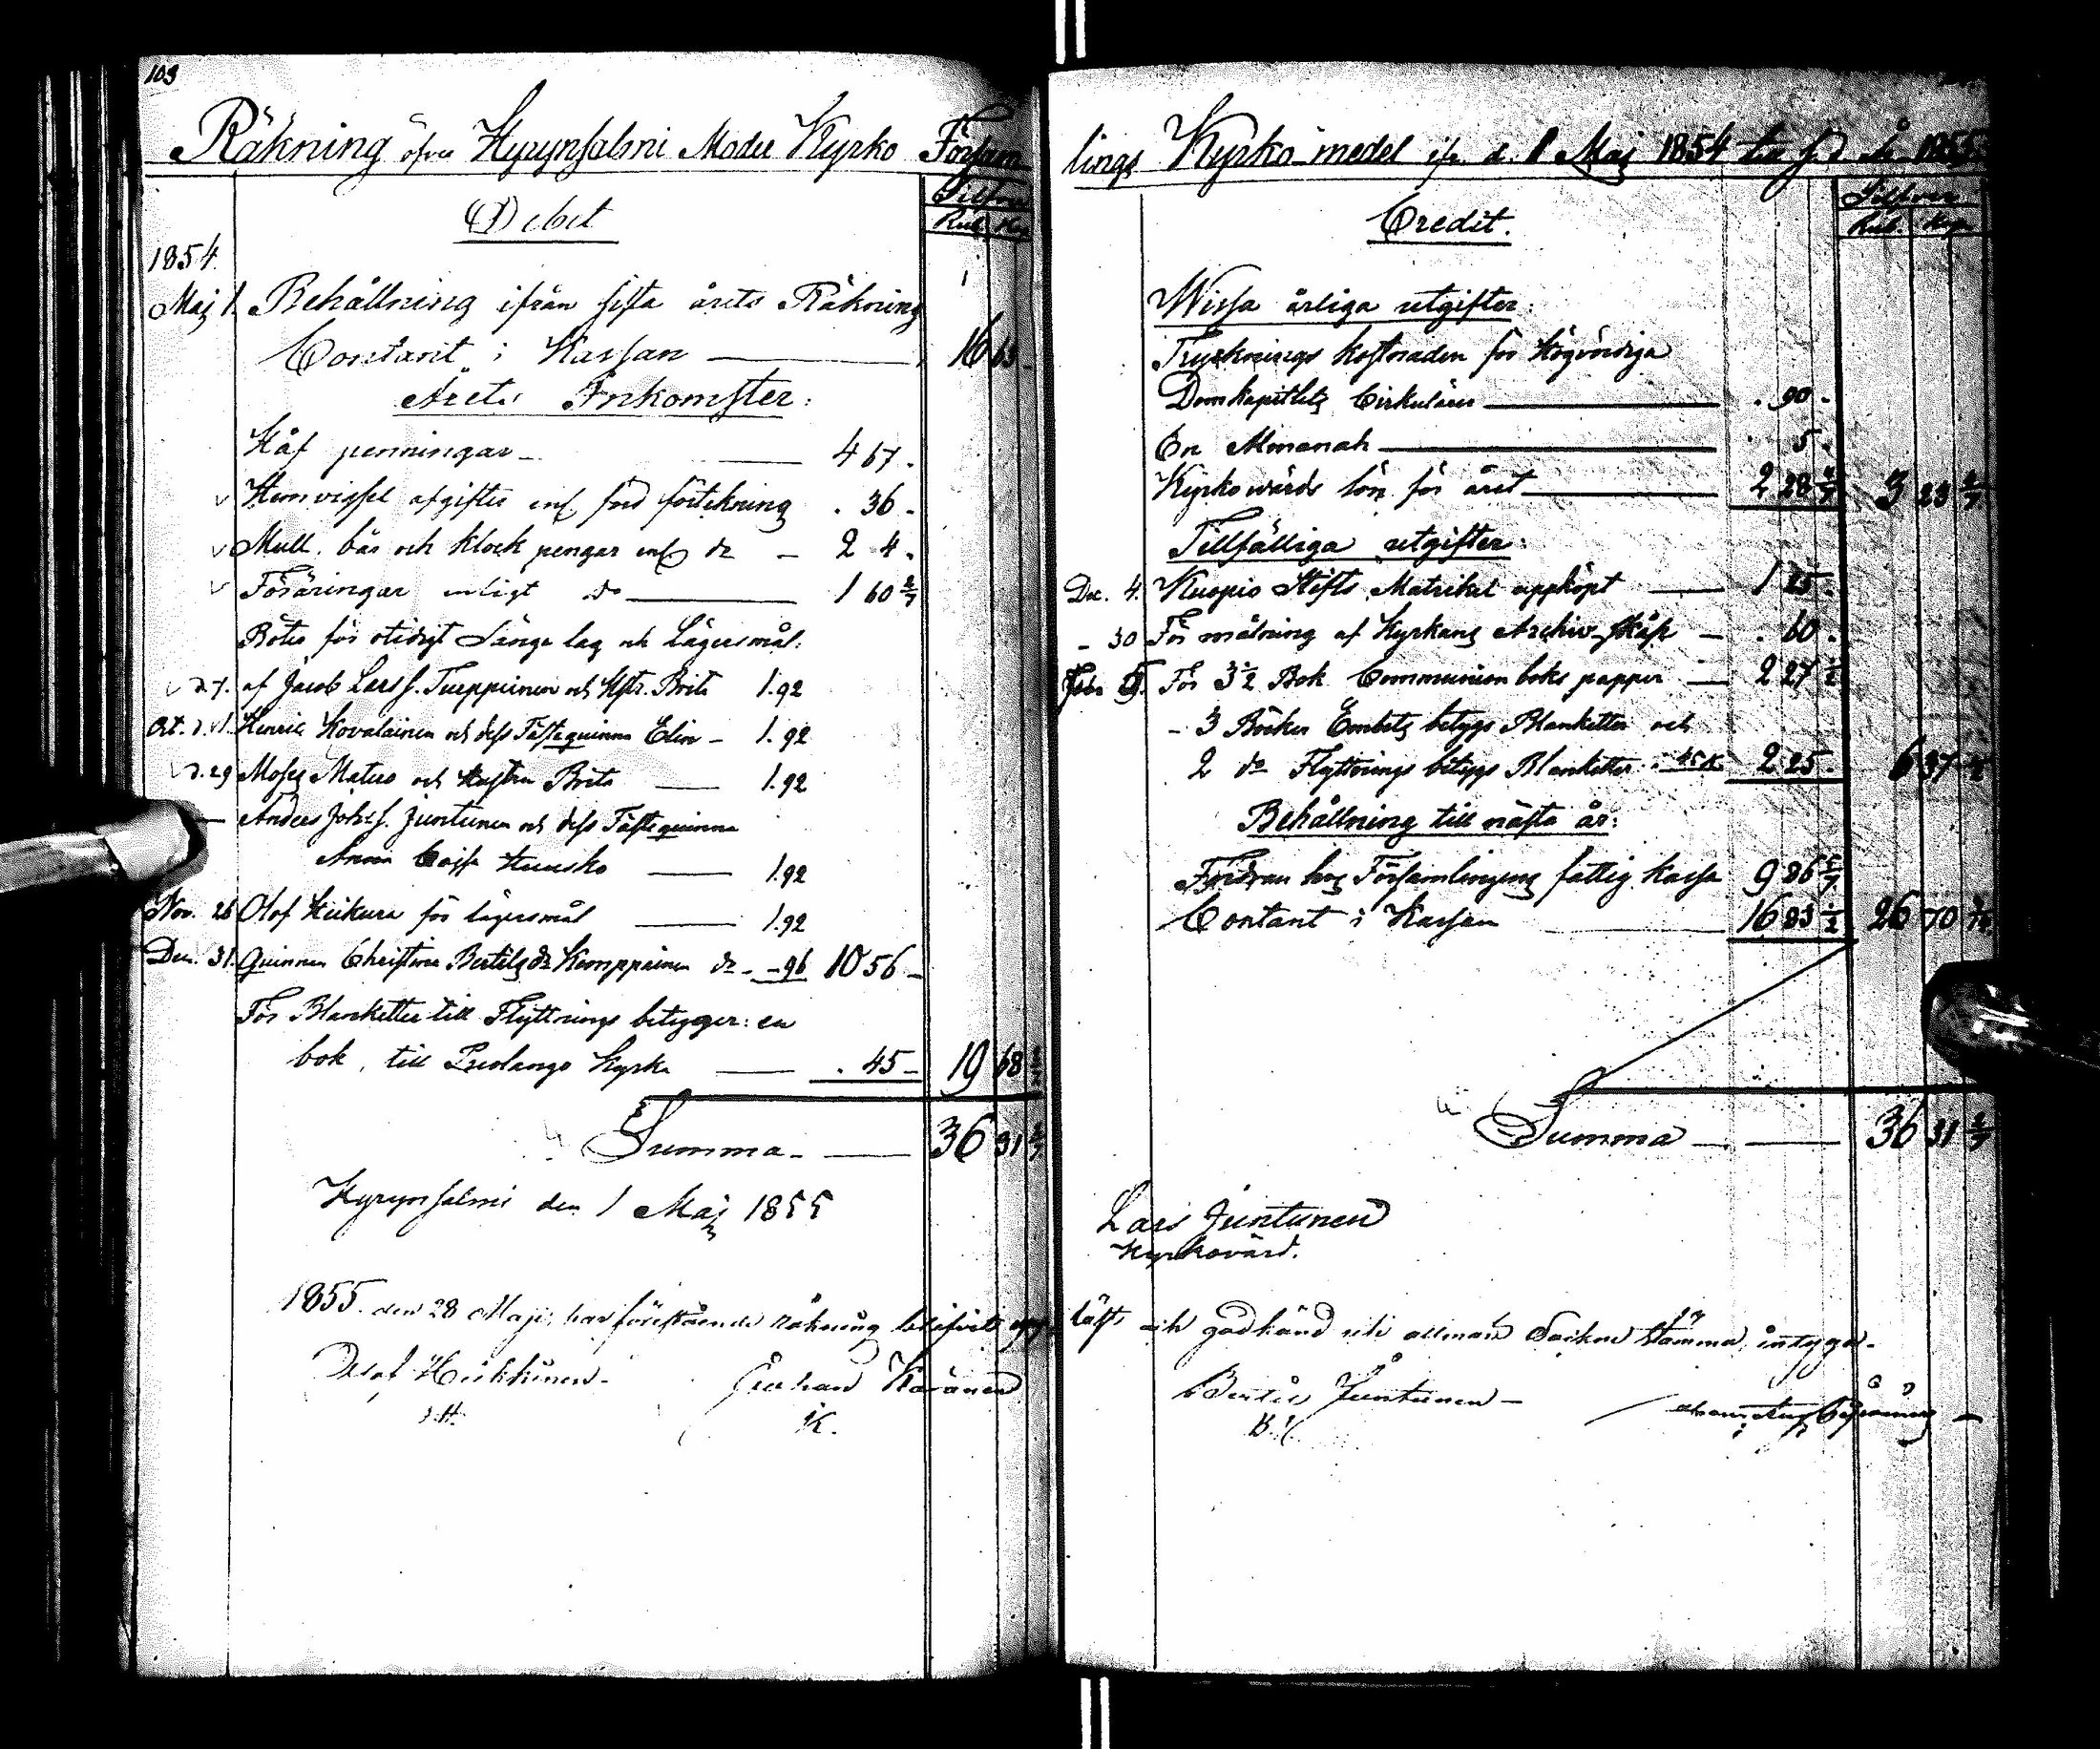 103
Räkning öfver Hyrynsalmi Moder Kyrko Försam
Debet
Silfver
Rub. Kop.
1854.
Maj 1. Behållning ifrån sista årets Räkning
Contant i Kassan — 16 63 -
Årets Inkomster:
Håf penningar - — 4 67.
v Hemvigsel afgifter enl. förteckning . 36 -
v Mull. bår och klock pengar enl. do - 2 4.
v Föräringar enligt do — 1 60 2/7
Böter för otidigt Sänge lag och Lägersmål:
v d. 7. af Jacob Larss. Turppunen och Hstr. Brita 1.92
Oct. d. v 1. Henric Kovalainen och dess Fästequinna Elin - 1.92
v d. 29 Moses Matero och Hustru Brita — 1.92
— Anders Johss. Juntunen och dess Fästequinna
Anna Caisa Huusko — 1.92
Nov. 26 Olof Heikura för lägersmål — 1.92
Dec. 31. Quinnan Christina Bertils dr Kemppainen do - - 96 10 56 -
För Blanketter till Flyttnings betyger: en
bok, till Puolango Kyrka — . 45 - 19 68 2/7
Summa - — 36 31 2/7
Hyrynsalmi den 1 Maj 1855
1855. den 28 Maji, har förestående räkning blifvit upp
Olof Heikkinen.
Johan Karanen
K.
lings Kyrko-medel ifr. d. 1 Maj 1854 till s. d. År 1855.
Credit.
Silfver
Rub. Kop.
Wissa årliga utgifter:
Trycknings kostnaden för Högvördiga
Domkapitlets Cirkulärer — . 90 -
En Almanah — . 5.
Kyrkowärds lön för året — 2 28 4/7 3 23 4/7
Tillfälliga utgifter:
Dec. 4. Kuopio Stifts Matrikel uppköpt — 1 25.
- 30 För målning af Kyrkans Archiv-skåp — . 60.
Febr. För 3 1/2 Bok Communion boks papper — 2 27 1/2
- 3 Böcker Embets betygs Blanketter och
2 do Flyttnings betygs Blanketter à 45 K. 2 25. 6 37 1/2
Behållning till nästa år:
Fordran hos Församlingens fattig kassa 9 86 5/7
Contant i Kassan — 16 83 1/2 26 70 3/14
Summa — — 36 31 2/7
Lars Juntunen
Kyrkovärd.
läst och godkänd uti allmän Sockne stämma, intyga.
Bertil Juntunen -